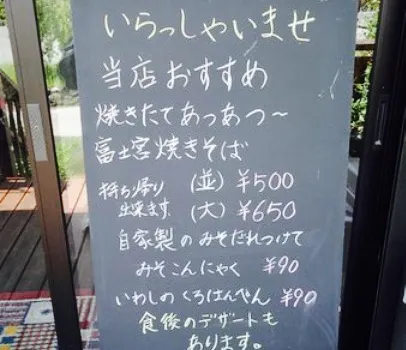 いらっしゃいませ
当店おすすめ
焼きたてあっあつ～
富士宮焼きそば
持ち帰り (並) ¥500
出来ます。 (大) ¥650
自家製のみそだれつけて
みそこんにゃく ¥90
いわしのくろはんぺん ¥90
食後のデザートも
あります。